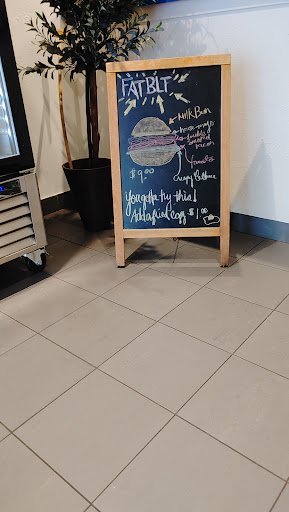 FAT BLT
Milk Bun
house mayo
double
smoked
bacon
Tomato
Crispy Lettuce
$9.00
You gotta try this!
Add a fried egg $1.00